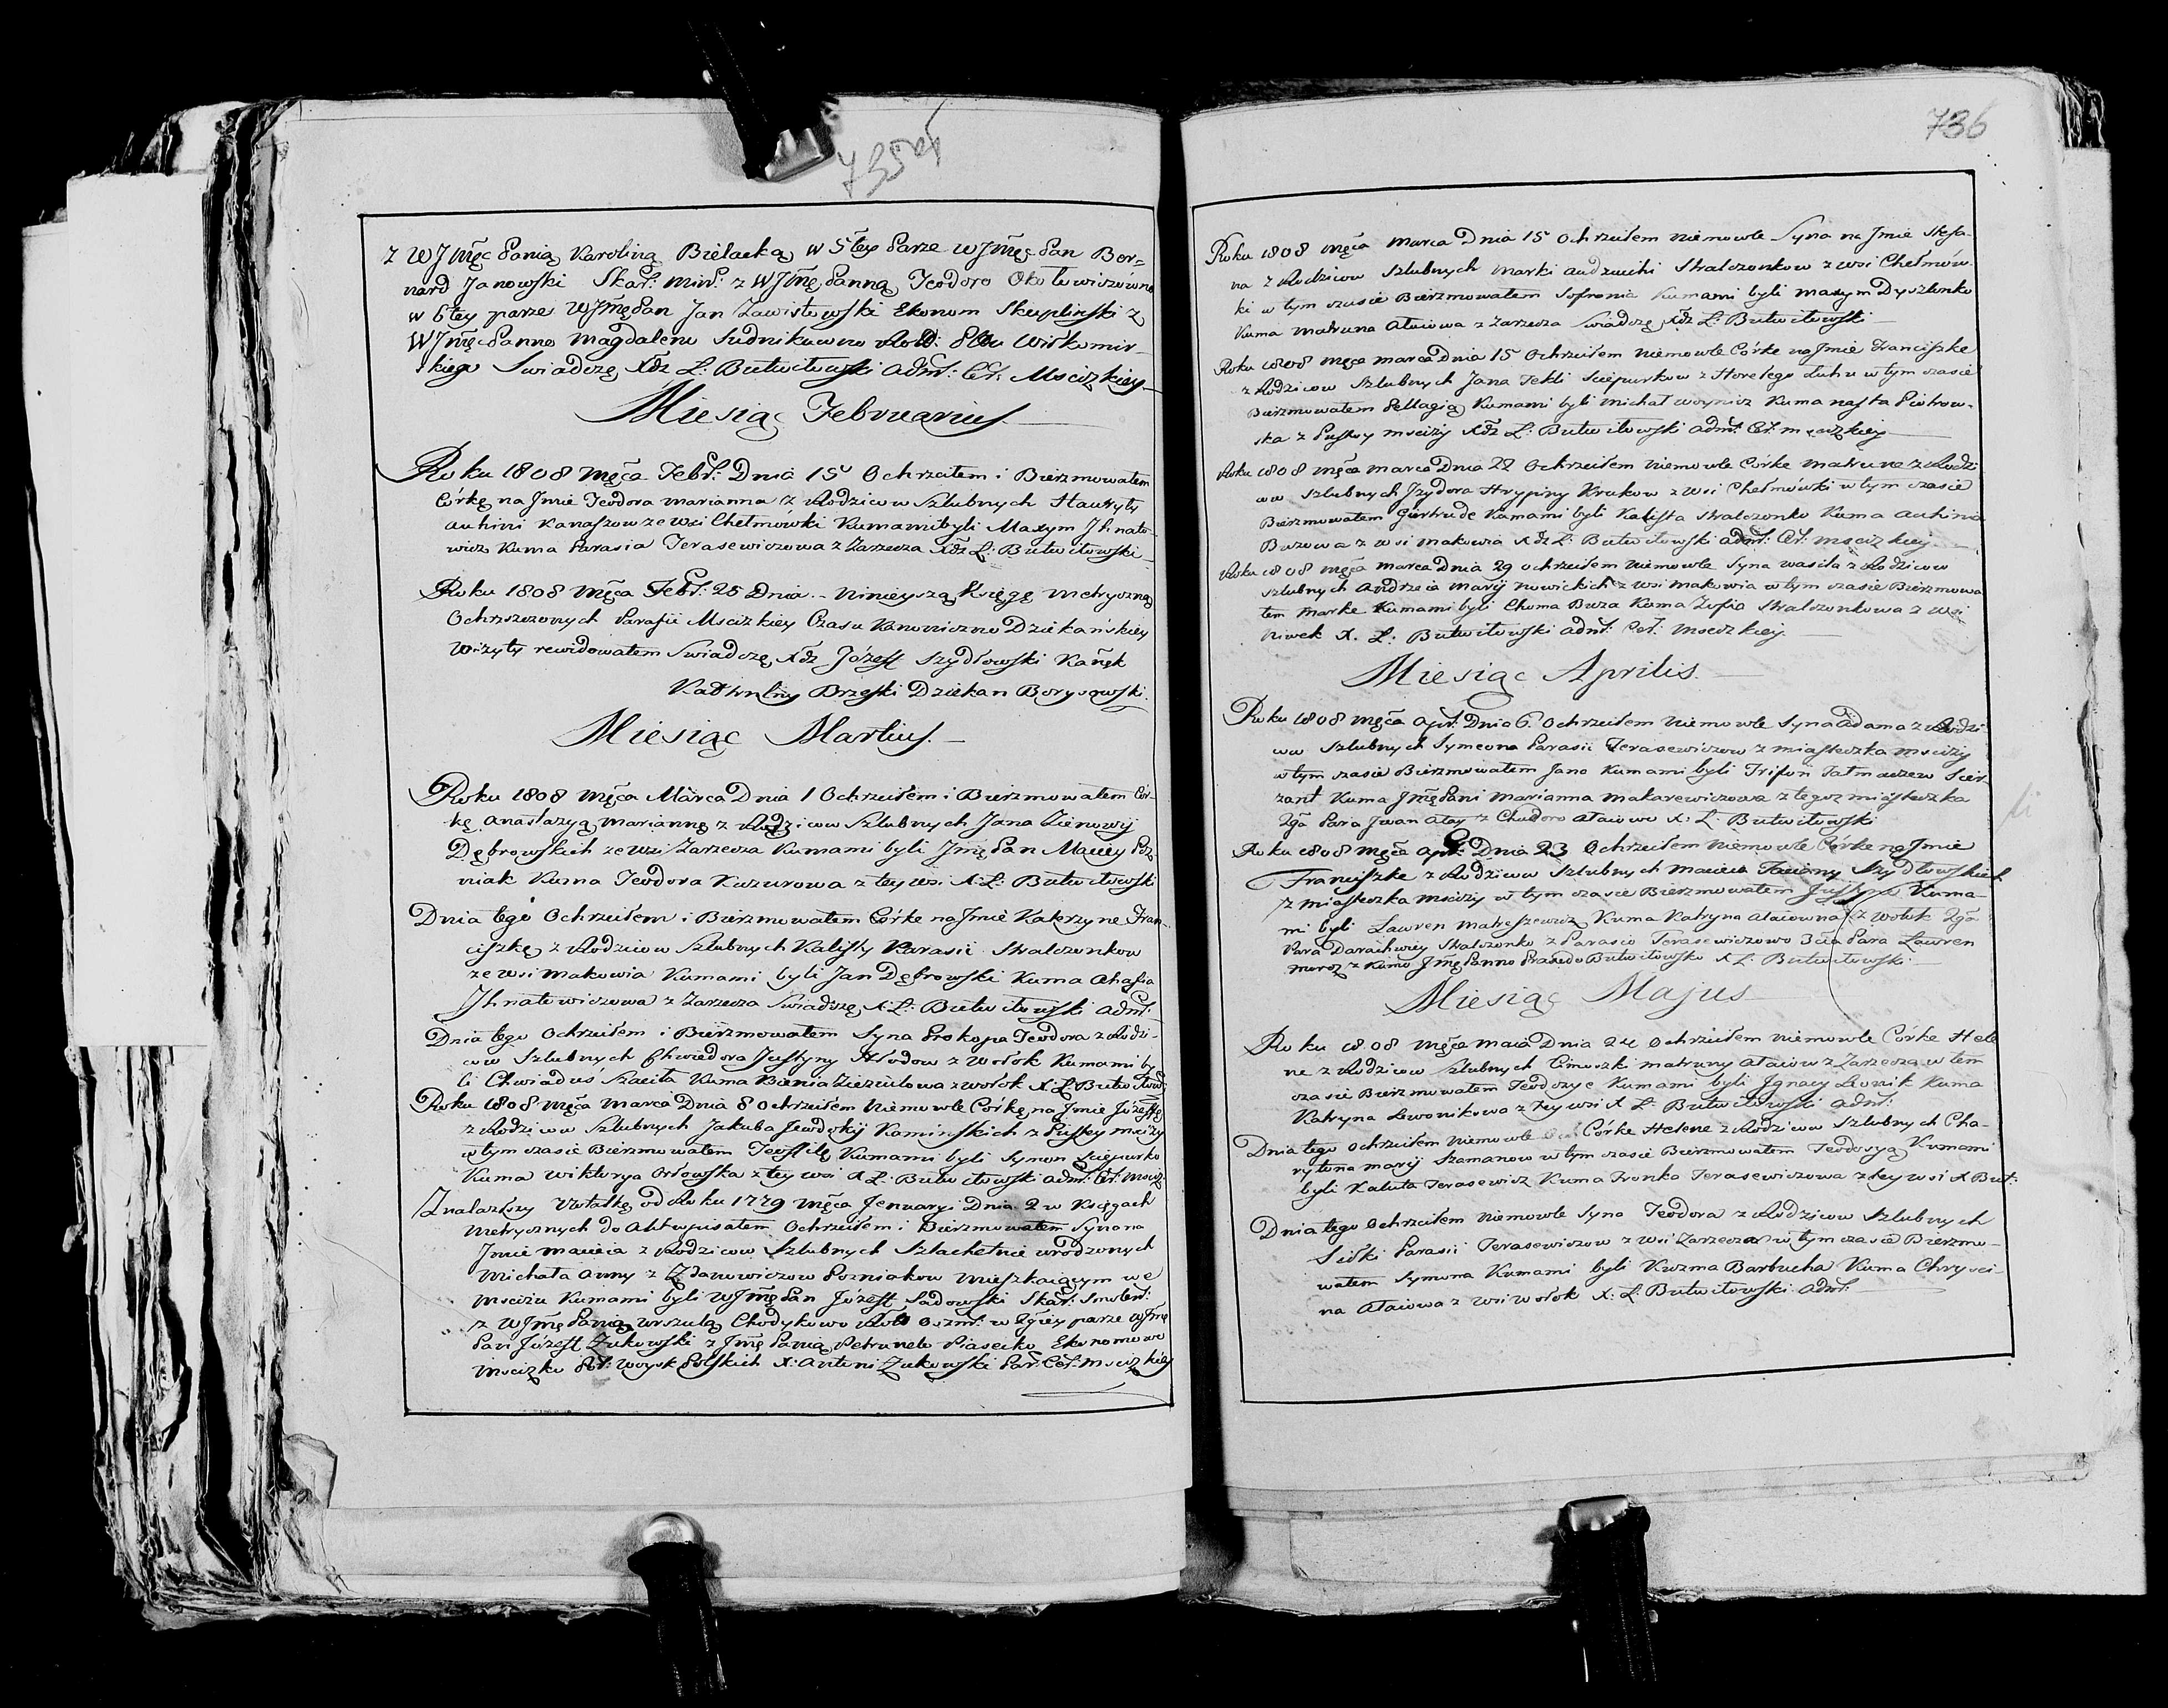 735v
z WJmęc Panią Karoliną Bielacką w 5tey Parze WJmęc Pan Ber=
nard Janowski Skar: Miń: z WJmę Panną Teodoro Okołowiczówno
w 6tey parze WJmę Pan Jan Zawistowski Ekonom Skuplinski z
WJmęc Panno Magdaleno Sudnikowno
skiego Swiadczę Xdz L: Butwiłowski Adm: Cer: Mscizkiey
Miesiąc Februarius
Roku 1808 Męca Febr: Dnia 15 Ochrzciłem i Bierzmowałem
Córkę na Jmie Teodora Marianna z Rodzicow Szlubnych Hauryły
Auhini Kanaszow ze wsi Chełmówki Kumami byli Maxym Jhnato-
wicz Kuma Parasia Terasewiczowa z Zarzecza Xdz L: Butwiłowski
Roku 1808 Męca Febr: 25 Dnia Ninieyszą Księgę Metryczną
Ochrzszczonych Parafii Mscizkiey Czasu Kanoniczno Dziekańskiey
Wizyty rewidowałem Swiadczę Xdz Józeff Szydłowski Kań:k
Kathralny Brzeski Dziekan Borysowski
Miesiąc Martius
Roku 1808 Męca Marca Dnia 1 Ochrzciłem i Bierzmowałem Cór-
kę Anastazyą Mariannę z Rodzicow Szlubnych Jana Zienowij
Dębrowskich ze wsi Zarzecza Kumami byli Jmę Pan Maciey Poz-
niak Kuma Teodora Kuzurowa z tey wsi X: L: Butwiłowski
Dnia tego Ochrzciłem i Bierzmowałem Córke na Jmie Katerzyne Fran-
ciszkę z Rodzicow Szlubnych Kalisty Parasii Skalczonkow
ze wsi Makowia Kumami byli Jan Dębrowski Kuma Ahafia
Jhnatowiczowa z Zarzecza Swiadszę X: L: Butwiłowski Adm:
Dnia tego Ochrzciłem i Bierzmowałem Syna Prokopa Teodora z Rodzi-
cow Szlubnych Chwiedora Justyny Hłodow z Wołok Kumami by
li Chwiaduś Szaciła Kuma Xienia Ziezulowa z Wołok X: L: Butwiłow:
Roku 1808 Męca Marca Dnia 8 Ochrzciłem Niemowle Córkę na Jmie Józeffę
z Rodzicow Szlubnych Jakuba Jewdokij Kaminskich z Pustey Mscizy
w tym czasie Bierzmowałem Teofilę Kumami byli Symon Sciepurko
Kuma Wiktorya Orłowska z tey wsi X L: Butwiłowski Adm: Cer: Mscisz
Znalazłszy Notatkę od Roku 1779 Męca Jenuary Dnia 2 w Księgach
Metrycznych do Akt wpisałem Ochrzciłem i Bierzmowałem Syna na
Jmie Macieia z Rodzicow Szlubnych Szlachetnie urodzonych
Michała Anny z Zdanowiczow Pozniakow Mieszkaiącym we
Msciżu Kumami byli WJmę Pan Józeff Sadowski Skar: Smoleń:
z WJmę Panią Urszulą Chodykowo Rot: Oszm: w 2giey parze WJmę
Pan Józeff Zukowski z Jmę Panią Petrunelo Piasecko Ekonomowo
Msciżko Por: Woysk Polskich X: Antoni Żukowski Par: Cer: Mscizkiey
736
Roku 1808 Męca Marca Dnia 15 Ochrzciłem Niemowle Syna na Jmie Stefa-
na z Rodzicow Szlubnych Marki Audziuchi Skalczonkow z wsi Chełmów-
ki w tym czasie Bierzmowałem Sofronia Kumami byli Maxym Dyszlonko
Kuma Matruna Ataiowa z Zarzecza Swiadczę Xdz L: Butwiłowski
Roku 1808 Męca Marca Dnia 15 Ochrzciłem Niemowle Córke na Jmie Franciszke
z Rodzicow Szlubnych Jana Tekli Sciepurkow z Horełego Łuhu w tym czasie
Bierzmowałem Pellagią Kumami byli Michał Woynicz Kuma Nasta Piotrow-
ska z Pustey Msciży Xdz L: Butwiłowski Adm: Cer: Mscizkiey
Roku 1808 Męca Marca Dnia 22 Ochrzciłem Niemowle Córke Matrune z Rodzi
cow Szlubnych Jzydora Hrypiny Krukow z wsi Chełmówki w tym czasie
Bierzmowałem Giertrude Kumami byli Kalista Skalczonko Kuma Auhinia
Buzowa z wsi Makowia Xdz L: Butwiłowski Adm: Cer: Mscizkiey
Roku 1808 Męca Marca Dnia 29 Ochrzciłem Niemowle Syna Wasila z Rodzicow
Szlubnych Andrzeia Marij Nowickich z wsi Makowia w tym czasie Bierzmowa
łem Marke Kumami byli Choma Buza Kuma Zofia Skalczonkowa z wsi
Niwek X. L: Butwiłowski Adm: Cer: Mscizkiey
Miesiąc Aprilis
Roku 1808 Męca Apr: Dnia 6 Ochrzciłem Niemowle Syna Adama z Rodzi-
cow Szlubnych Symeona Parasii Terasewiczow z Miasteczka Msciży
w tym czasie Bierzmowałem Jana Kumami byli Trifon Tołmaczew Sier-
zant Kuma Jmę Pani Marianna Makarewiczowa z tegoż Miasteczka
2ga Para Jwan Atay z Chudoro Ataiowo X: L: Butwiłowski
Roku 1808 Męca Apr: Dnia 23 Ochrzciłem Niemowle Córke na Jmie
Franciszke z Rodzicow Szlubnych Macieia Taciany Szydłowskich
z Miasteczka Msciży w tym czasie Bierzmowałem Justyne Kuma-
mi byli Lawren Matreszewicz Kuma Katryna Ataiowna z Wołok 2ga
Para Darachwiey Skalczonko z Parasio Terasewiczowo 3cia Para Lawren
Moroz z Kumo Jmę Panno Praxedo Butwiłowsko X L: Butwiłowski
Miesiąc Majus
Roku 1808 Męca Maia Dnia 24 Ochrzciłem Niemowle Córke Hele
ne z Rodzicow Szlubnych Cimoszki Matruny Ataiow z Zarzecza w tem
czasie Bierzmowałem Teodozye Kumami byli Jgnacy Leonik Kuma
Katryna Lewonikowa z tey wsi X L: Butwiłowski Adm:
Dnia tego Ochrzciłem Niemowle Córke Helene z Rodzicow Szlubnych Cha-
rytona Marij Szamanow w tym czasie Bierzmowałem Teodosyą Kumami
byli Kaluta Terasewicz Kuma Fronka Terasewiczowa z tey wsi X But:
Dnia tego Ochrzciłem Niemowle Syna Teodora z Rodzicow Szlubnych
Sidki Parasii Terasewiczow z wsi Zarzecza w tym czasie Bierzmo-
wałem Symona Kumami byli Kuzma Barbucha Kuma Chrysci-
na Ataiowa z wsi Wołok X: L: Butwiłowski Adm: